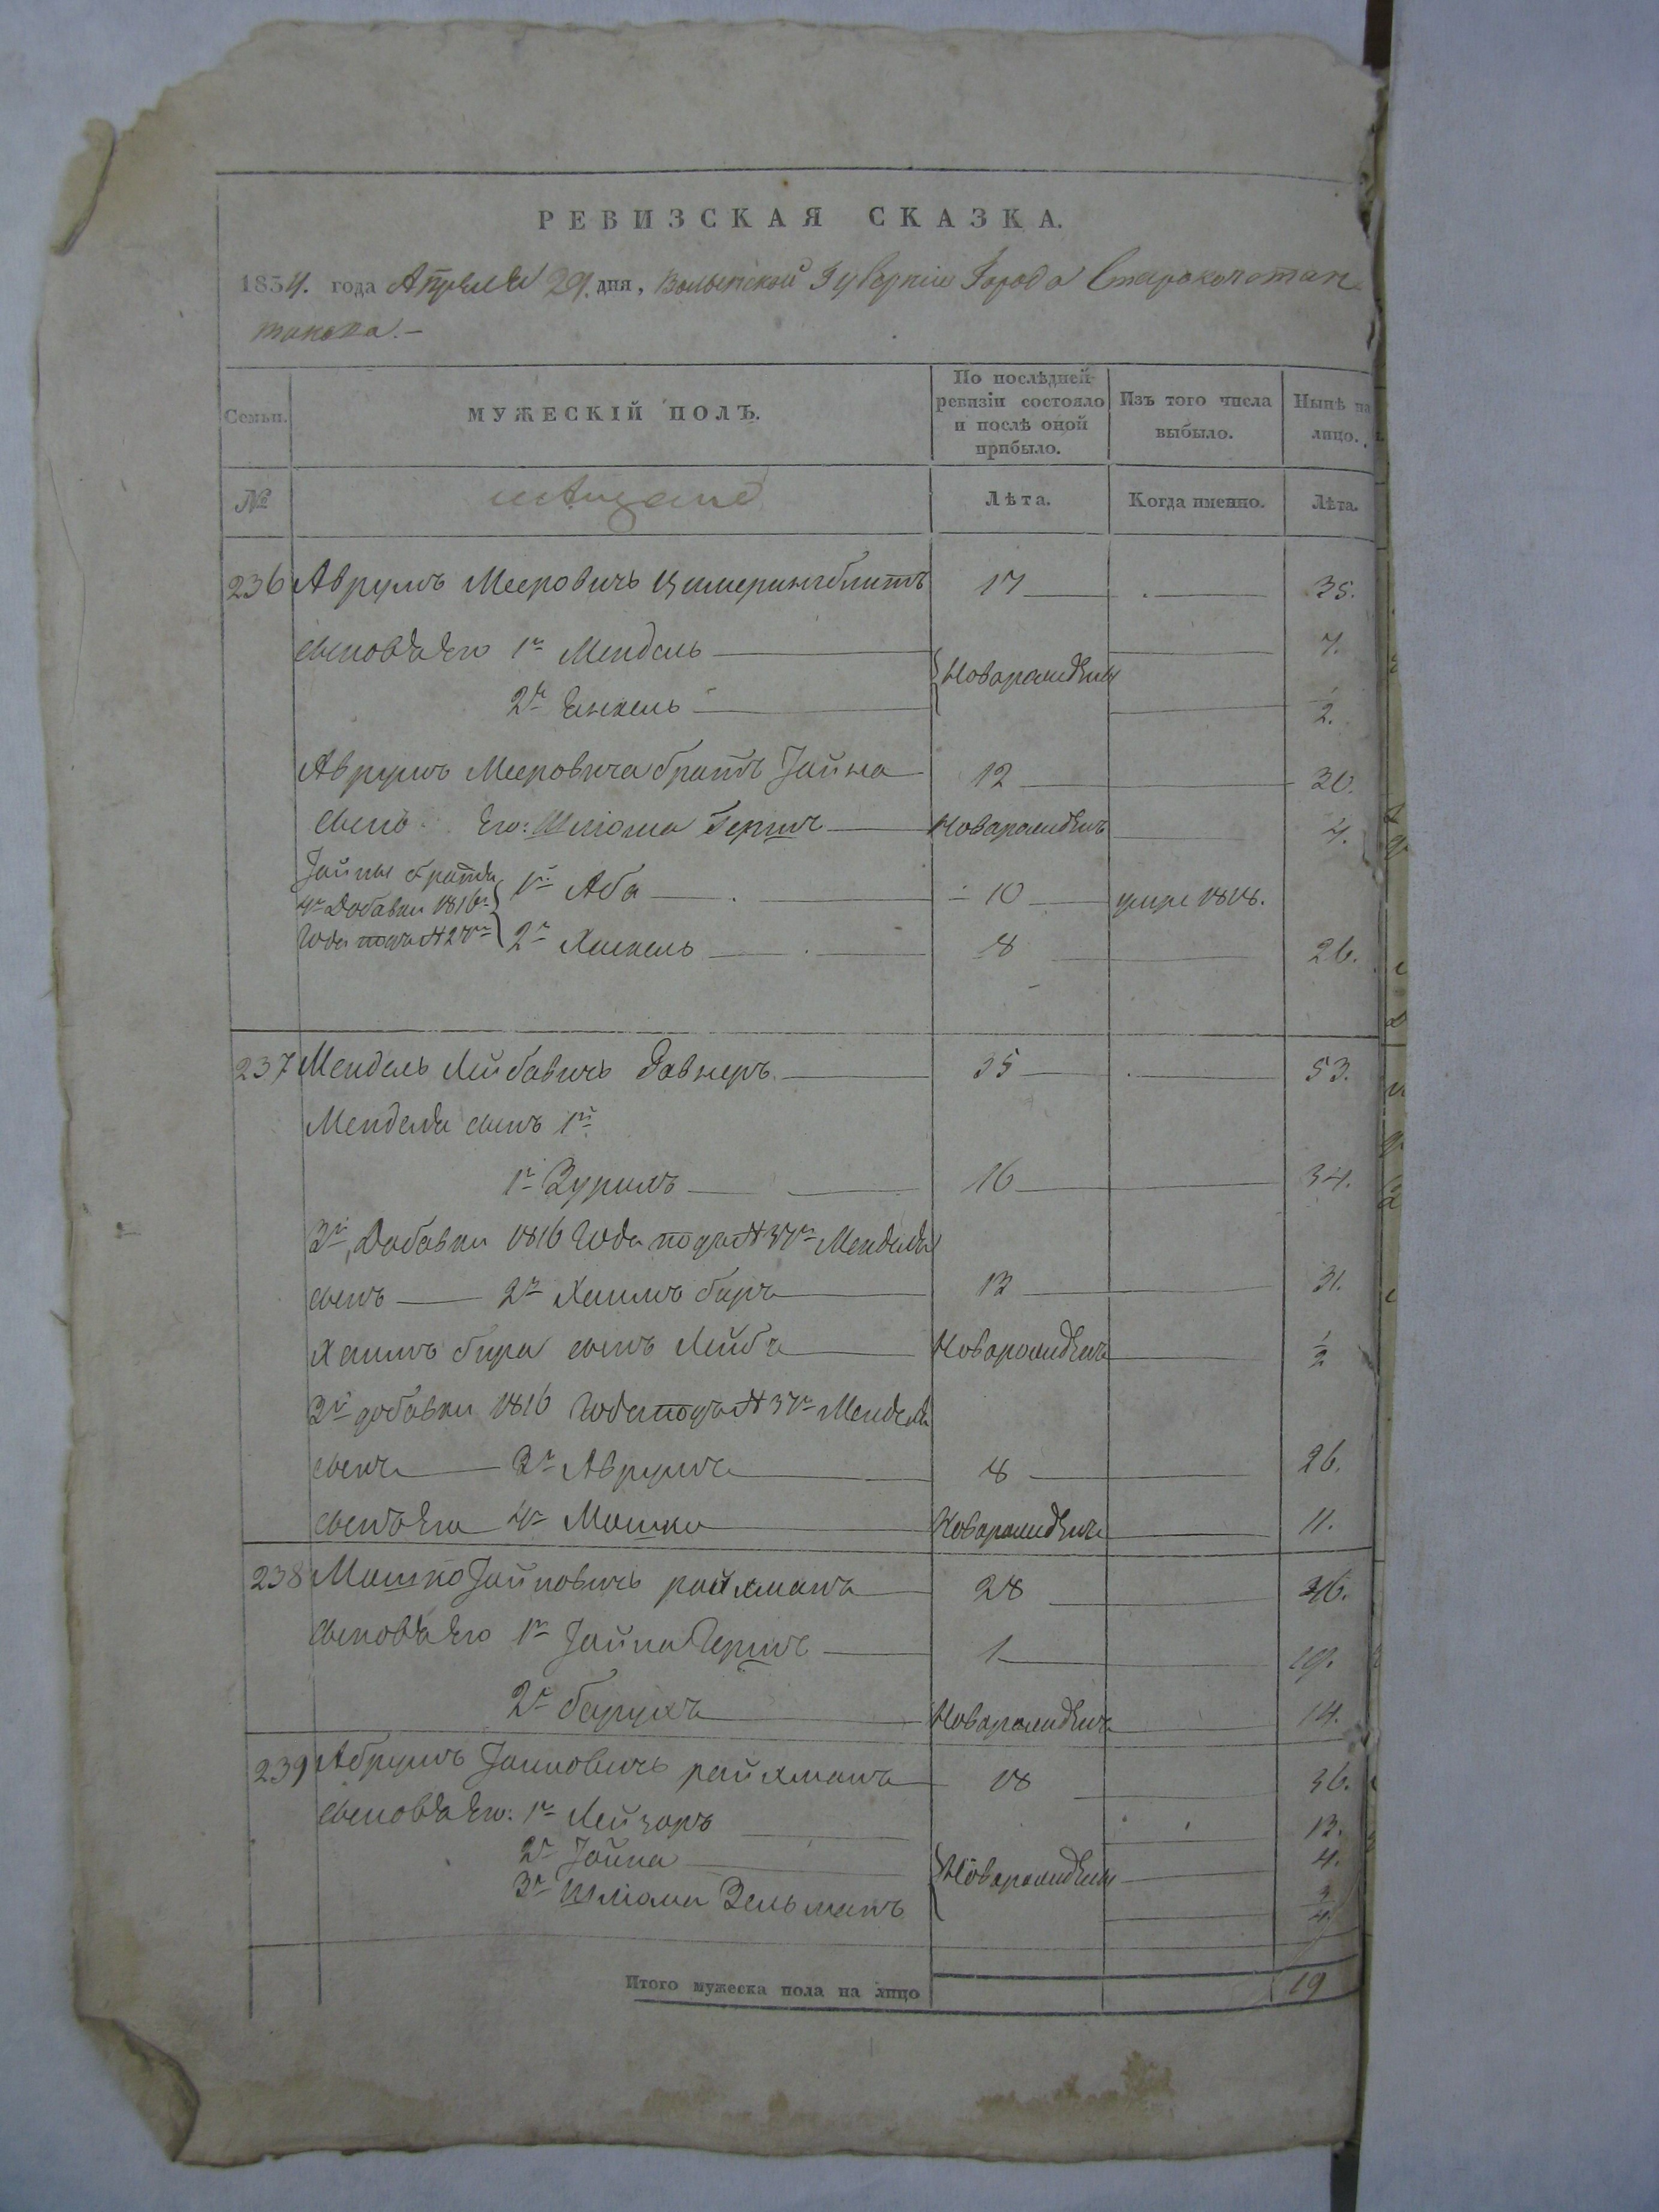 РЕВИЗСКАЯ СКАЗКА.
1834. года Апреля 29. дня, Волынской Губерніи Города Староконстан
тинова.—
Семьи. МУЖЕСКІЙ ПОЛЪ. По послѣдней ревизіи состояло и послѣ оной прибыло. Изъ того числа выбыло. Нынѣ на лицо.
№ мѣщане Лѣта. Когда именно. Лѣта.
236 Аврумъ Мееровичъ 17 35.
сыновья Его 1й Мендель 7.
Новорожденны
2й Енкель 1/2.
Аврумъ Мееровича братъ Іойна 12 30.
сынъ Его: Шлiома Гершъ Новорожденъ 4.
Іойны братья 1й Аба 10 умре 1818.
4й Добавки 1816го
Года подъ №27м 2й Хаскель 8 26.
237 Мендель Лейбовичъ Равнеръ 35 53.
Менделя сынъ 1й
1й Зурихъ 16 34.
3й Добавки 1816 Года подъ №37м Менделя
сынъ 2й Хаимъ беръ 13 31.
Хаимъ бера сынъ Лейба Новорожденъ 1/2
3й добавки 1816 Года подъ №37м Менделя
сынъ 3й Аврумъ 8 26.
сынъ Его 4й Мошко Новорожденъ 11.
238 Мошко Іойновичъ ройхманъ 28 46.
сыновья Его 1й Іойна Гершъ 1 19.
2й барухъ Новорожденъ 14.
239 Абрумъ Іойновичъ ройхманъ 18 36.
сыновья Его: 1й Лейзоръ 13.
2й Іойна 4.
Новорожденны
3й Шлiома Зельманъ 3/4.
Итого мужеска пола на лицо 19